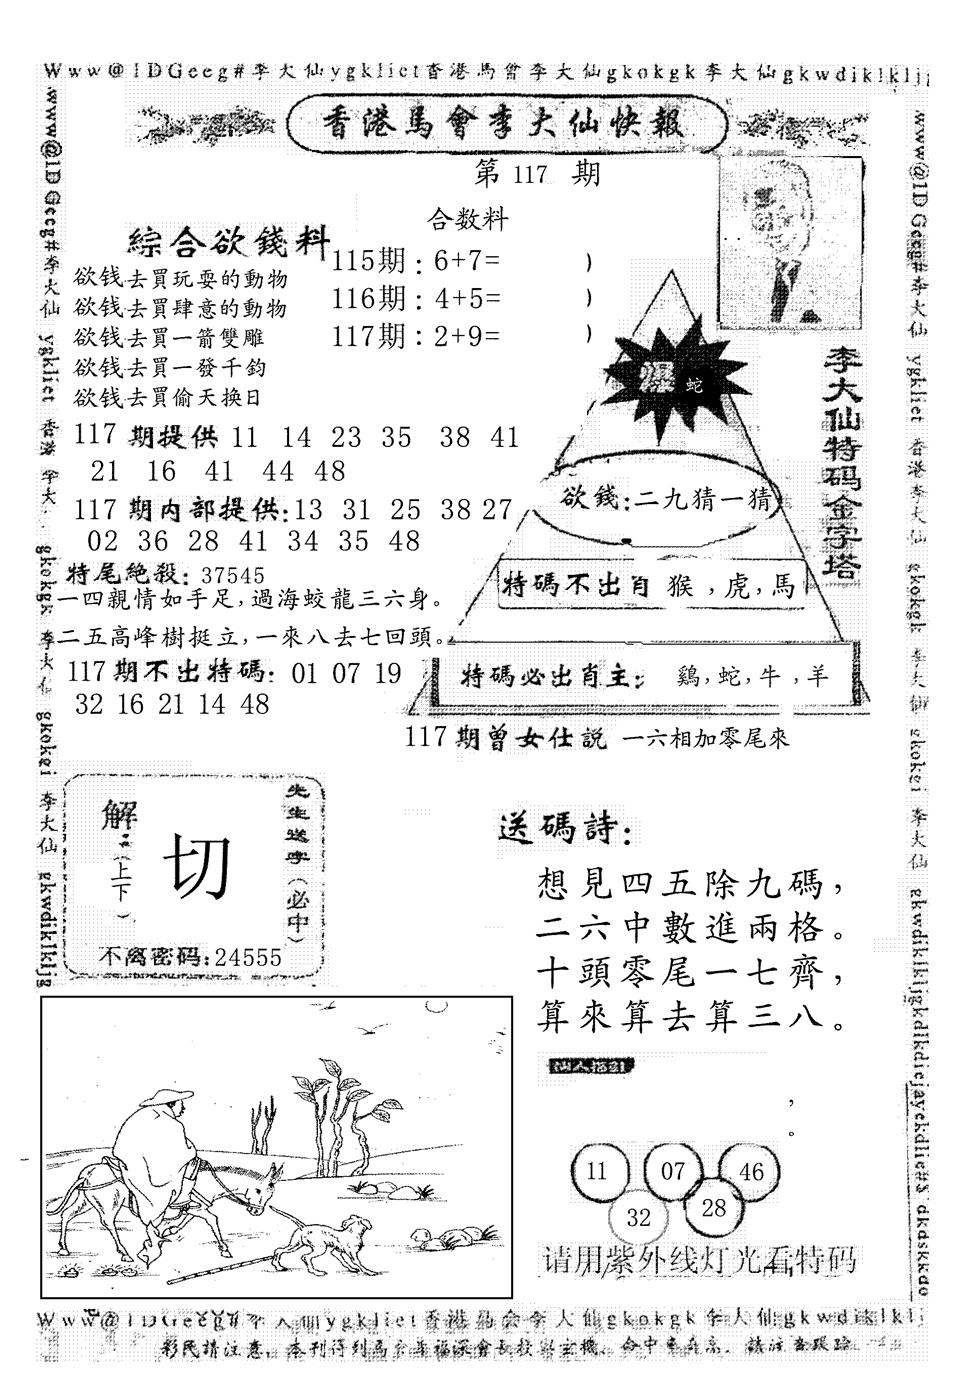 Www@1DGeeg#李大仙ygkliet香港馬會李大仙gkokgk李大仙gkwdiklkljg
香港馬會李大仙快報
第 117 期
合数料
綜合欲錢料
115期:6+7= )
116期:4+5= )
117期:2+9= )
欲钱去買玩耍的動物
欲钱去買肆意的動物
欲钱去買一箭雙雕
欲钱去買一發千鈞
欲钱去買偷天换日
爆 蛇
李大仙特码金字塔
117 期提供 11 14 23 35 38 41
21 16 41 44 48
117 期内部提供:13 31 25 38 27
02 36 28 41 34 35 48
欲錢:二九猜一猜
特尾絶殺:37545
一四親情如手足,過海蛟龍三六身。
二五高峰樹挺立,一來八去七回頭。
特碼不出肖 猴,虎,馬
117期不出特碼:01 07 19
32 16 21 14 48
特碼必出肖主: 鷄,蛇,牛,羊
117期曾女仕説 一六相加零尾來
先生送字(必中)
解:(上下)
切
不离密码:24555
送碼詩:
想見四五除九碼,
二六中數進兩格。
十頭零尾一七齊,
算來算去算三八。
,
。
11 07 46
32 28
请用紫外线灯光看特码
Www@1DGeeg#李大仙ygkliet香港馬会李大仙gkokgk李大仙gkwdiklklj
彩民請注意,本刊得到馬会